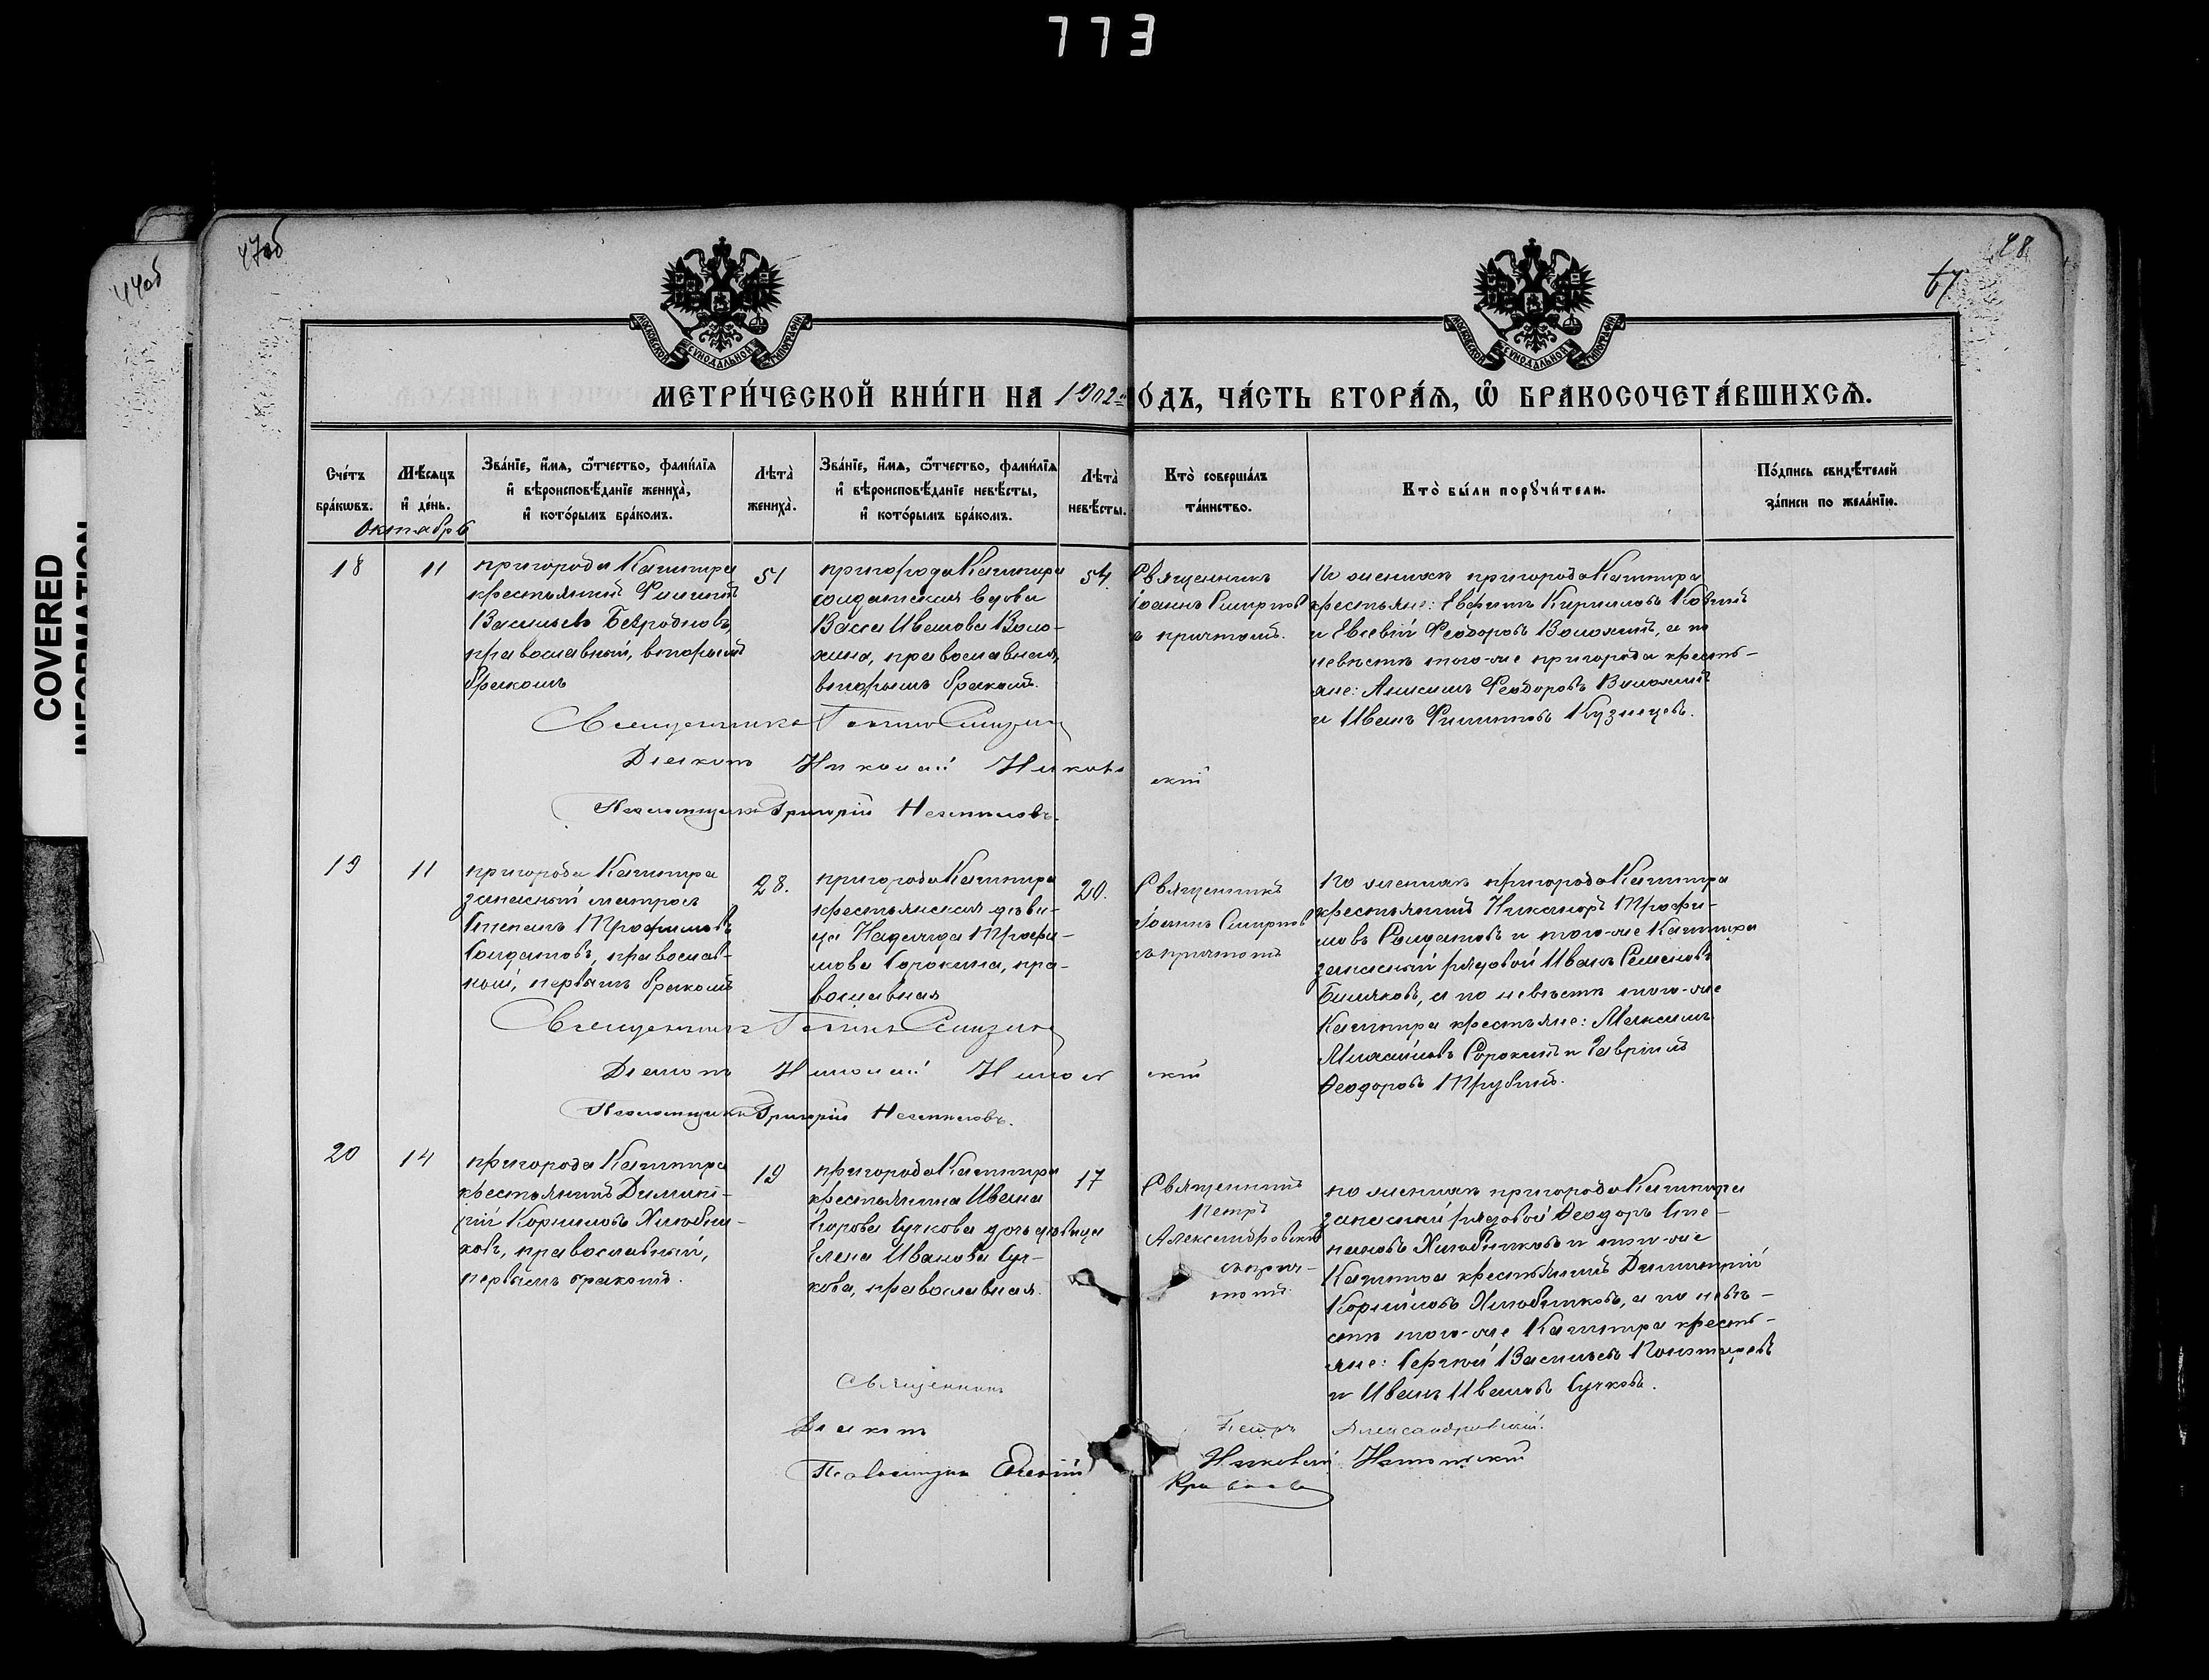 773
COVERED
INFORMATION
44об
47об
48
67
МОСКОВСКОЙ СѴНОДАЛЬНОЙ ТИПОГРАФІИ
МОСКОВСКОЙ СѴНОДАЛЬНОЙ ТИПОГРАФІИ
МЕТРИ́ЧЕСКОЙ КНИ́ГИ НА 1902 ГО́ДЪ, ЧА́СТЬ ВТОРА́Ѧ, Ѽ БРАКОСОЧЕТА́ВШИХСѦ.
Сче́тъ
бра́кѡвъ.
Мѣ́сяцъ
и҆ де́нь.
Октябрь
Зва́нїе, и҆́мѧ, ѻ҆́тчество, фами́лїѧ
и҆ вѣроисповѣ́данїе жениха̀,
и҆ кото́рымъ бра́комъ.
Лѣта̀
жениха̀.
Зва́нїе, и҆́мѧ, ѻ҆́тчество, фами́лїѧ
и҆ вѣроисповѣ́данїе невѣ́сты,
и҆ кото́рымъ бра́комъ.
Лѣта̀
невѣ́сты.
Кто̀ соверша́лъ
та́инство.
Кто̀ бы́ли порꙋчи́тели.
По́дпись свидѣ́телей
за́писи по жела́нїю.
18
11
пригорода Кашпира
крестьянинъ Филиппъ
Васильевъ Безродновъ,
православный, вторымъ
бракомъ
51
пригорода Кашпира
солдатская вдова
Васса Иванова Воло-
жина, православная,
вторымъ бракомъ.
54.
Священникъ
Іоаннъ Смирновъ
с причтомъ.
По женихѣ пригорода Кашпира
крестьяне: Евфимъ Кирилловъ
и Евсевій Феодоровъ Воложинъ, а по
невѣстѣ того-же пригорода кресть-
яне: Анисимъ Феодоровъ Воложинъ
и Иванъ Филипповъ Кузнецовъ.
Священникъ Іоаннъ Смирновъ
Діаконъ Николай Никольскій
Псаломщикъ Григорій
19
11
пригорода Кашпира
запасный матросъ
Степанъ Трофимовъ
Солдатовъ, православ-
ный, первымъ бракомъ
28.
пригорода Кашпира
крестьянская дѣви-
ца Надежда Трофи-
мова Сорокина, пра-
вославная
20.
Священникъ
Іоаннъ Смирновъ
съ причтомъ
По женихѣ пригорода Кашпира
крестьянинъ Никаноръ Трофи-
мовъ Солдатовъ и того-же Кашпира
запасный рядовой Иванъ Семеновъ
а по невѣстѣ того-же
Кашпира крестьяне: Максимъ
Михайловъ Сорокинъ и Гавріилъ
Феодоровъ Трубинъ.
Священникъ Іоаннъ Смирновъ
Діаконъ Николай Никольскій
Псаломщикъ Григорій
20
14
пригорода Кашпира
крестьянинъ Димит-
рій Корниловъ Хлѣбни-
ковъ, православный,
первымъ бракомъ.
19
пригорода Кашпира
крестьянина Ивана
Егорова Сучкова дочь дѣвица
Елена Иванова Суч-
кова, православная.
17
Священникъ
Петръ
Александровскій
съ прич-
томъ.
по женихѣ пригорода Кашпира
запасный рядовой Феодоръ Сте-
пановъ Хлѣбниковъ и того-же
Кашпира крестьянинъ Димитрій
Корниловъ Хлѣбниковъ, а по невѣ-
стѣ того-же Кашпира кресть-
яне: Сергей Васильевъ
и Иванъ Ивановъ Сучковъ.
Священникъ Петръ Александровскій.
Діаконъ Николай Никольскій
Псаломщикъ Евгеній